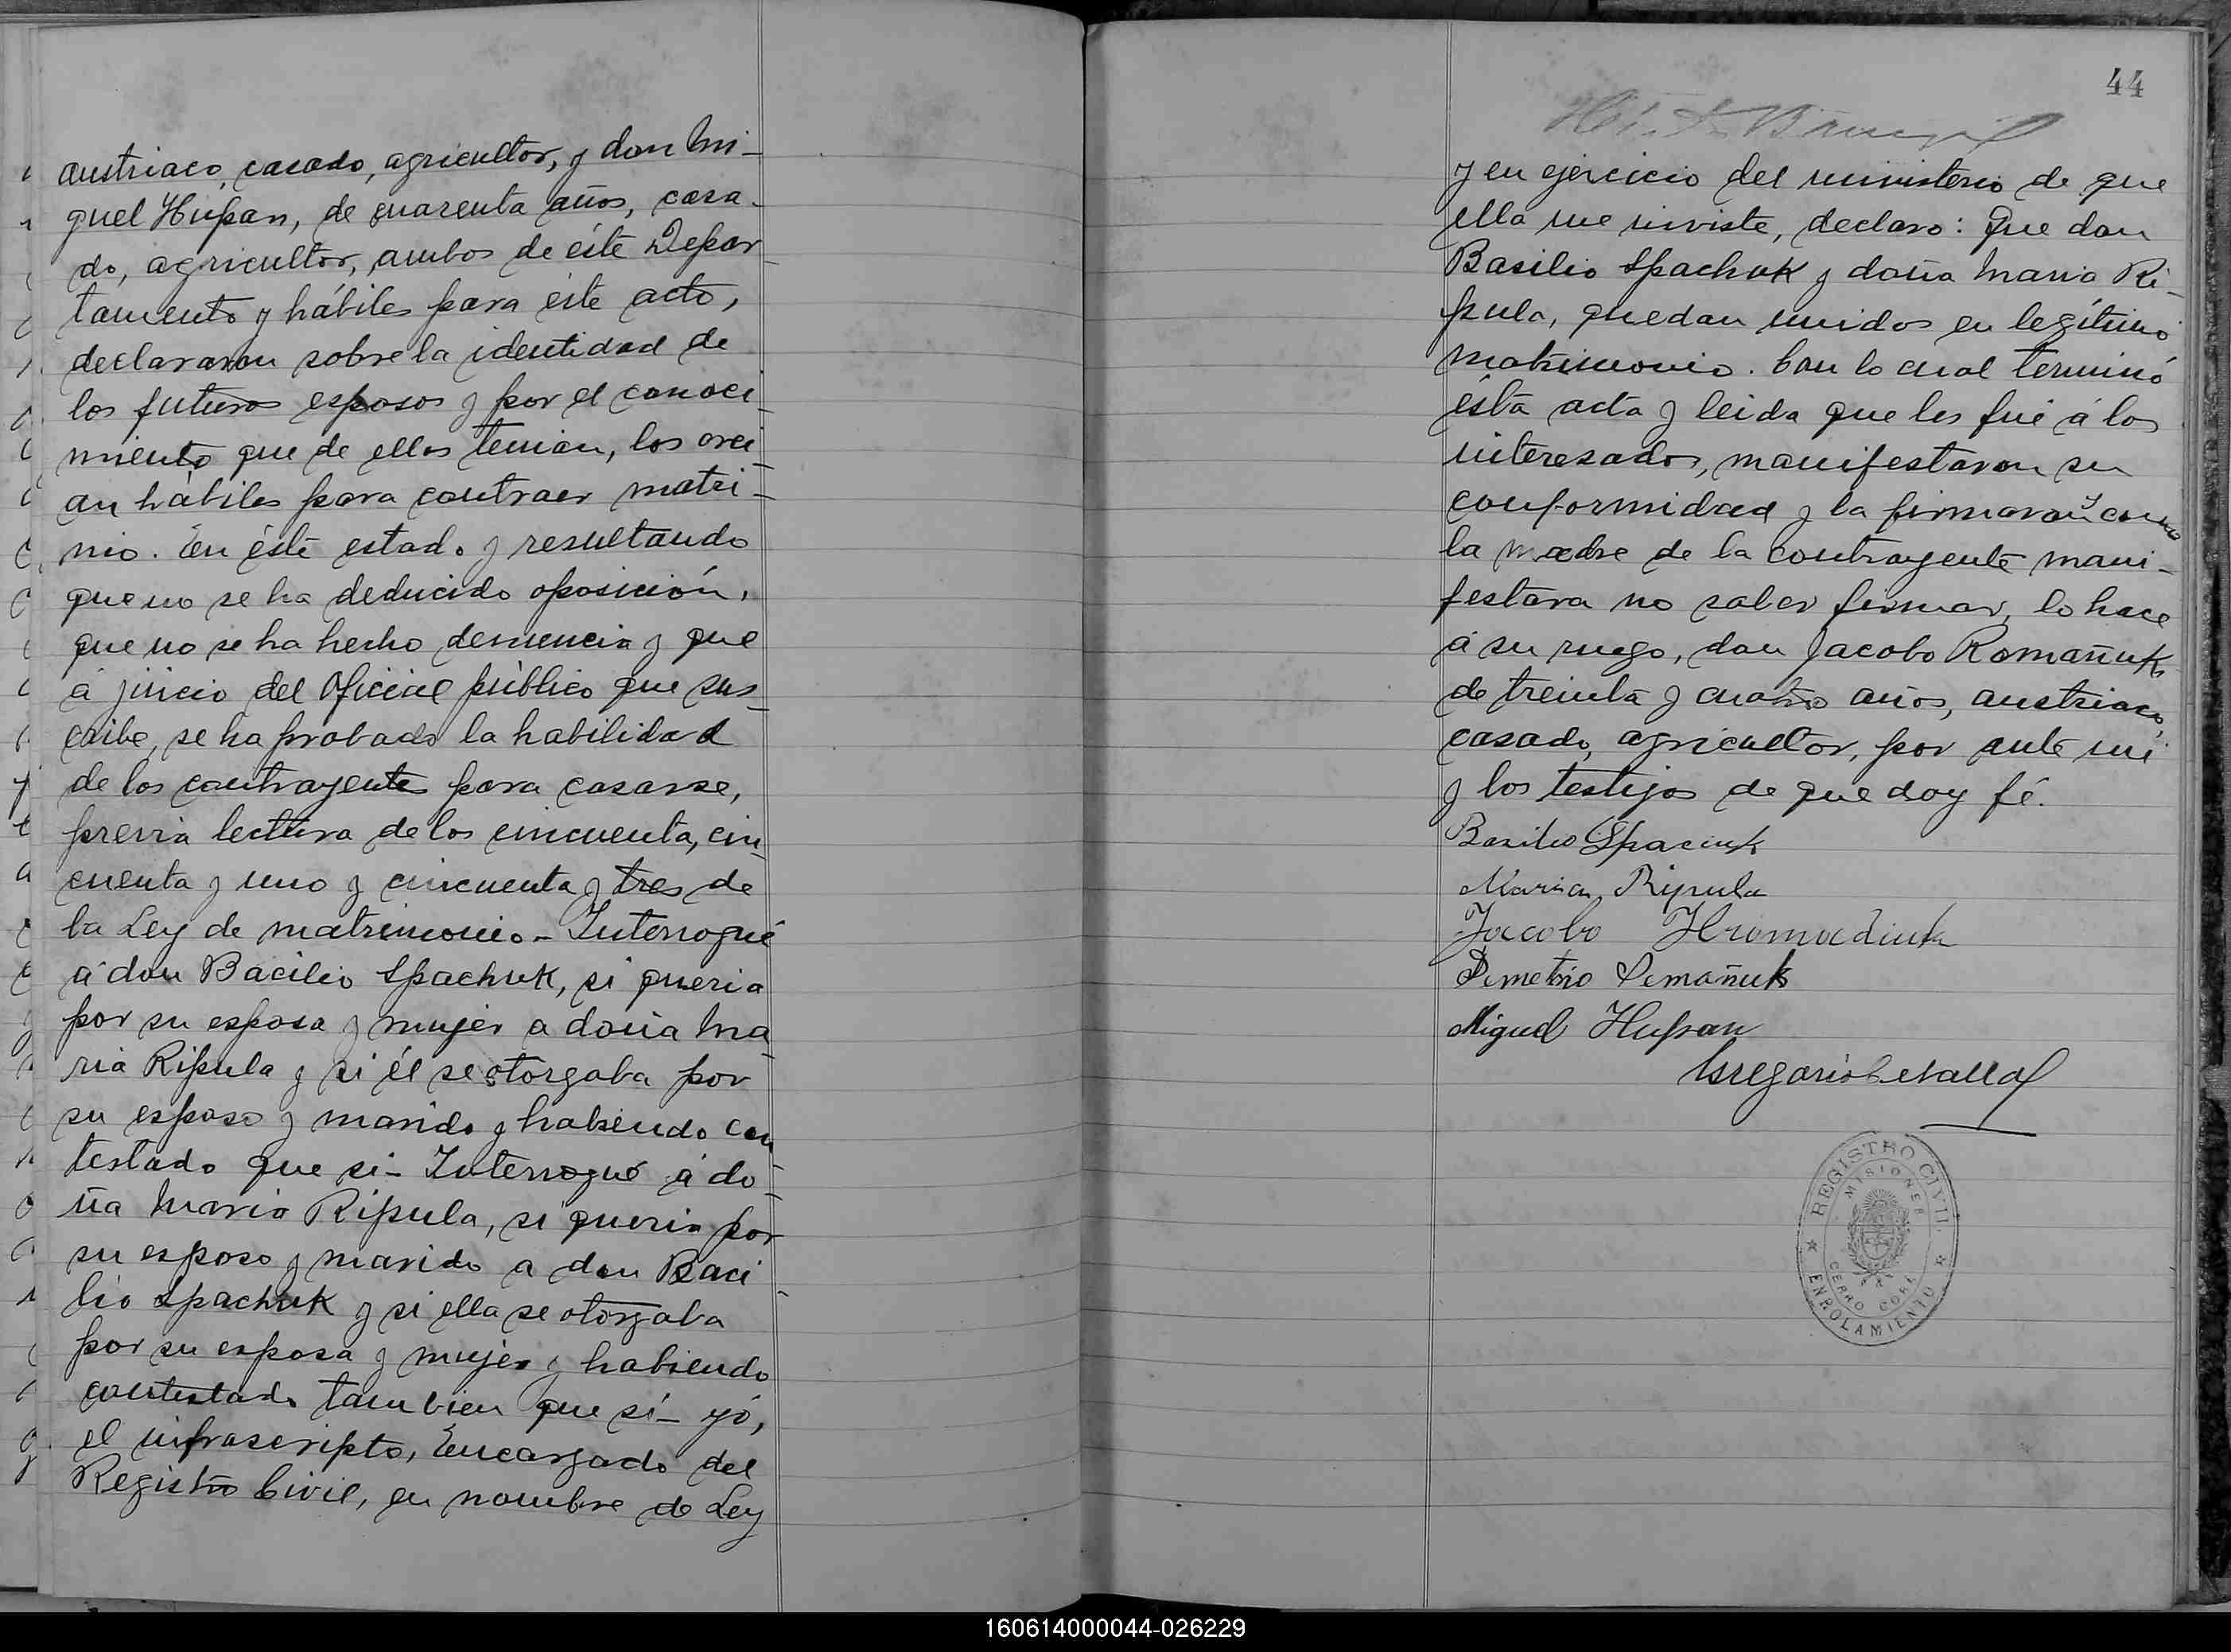 austriaco, casado, agricultor, y don Mi-
guel Hupan, de cuarenta años, casa-
do, agricultor, ambos de éste Depar-
tamento y hábiles para éste acto,
declararon sobre la identidad de
los futuros esposos y por el conoci-
miento que de ellos tenian, los crei-
an hábiles para contraer matri-
nio. En éste estado y resultando
que no se ha deducido oposición,
que no se ha hecho denuncia y que
á juicio del Oficial público que sus-
cribe, se ha probado la habilidad
de los contrayentes para casarse,
previa lectura de los cincuenta, cin-
cuenta y uno y cincuenta y tres de
la Ley de matrimonio - Interrogué
á don Bacilio Spachuk, si queria
por su esposa y mujer a doña Ma-
ria Ripula y si él se otorgaba por
su esposo y marido y habiendo con
testado que si - Interrogué á do-
ña Maria Ripula, si queria por
su esposo y marido a don Baci-
lio Spachuk y si ella se otorgaba
por su esposa y mujer y habiendo
contestado tambien que sí - yó,
el infrascripto, Encargado del
Registro Civil, en nombre de Ley
44
y en ejercicio del ministerio de que
ella me inviste, declaro: Que don
Basilio Spachuk y doña Maria Ri-
pula, quedan unidos en legítimo
matrimonio. Con lo cual terminó
ésta acta y leida que les fué á los
interesados, manifestaron su
conformidad y la firmaron y como
la madre de la contrayente mani-
festara no saber firmar, lo hace
á su ruego, don Jacobo Romañuk,
de treinta y cuatro años, austriaco,
casado, agricultor, por ante mi
y los testigos de que doy fé.
Basilio Spaciuk
Maria Ripula
Jacobo Hromadiuk
Demetrio Demañuk
Miguel Hupan
Gregorio
REGISTRO CIVIL
MISIONES
CERRO CORÁ
★ ENROLAMIENTO ★
160614000044-026229